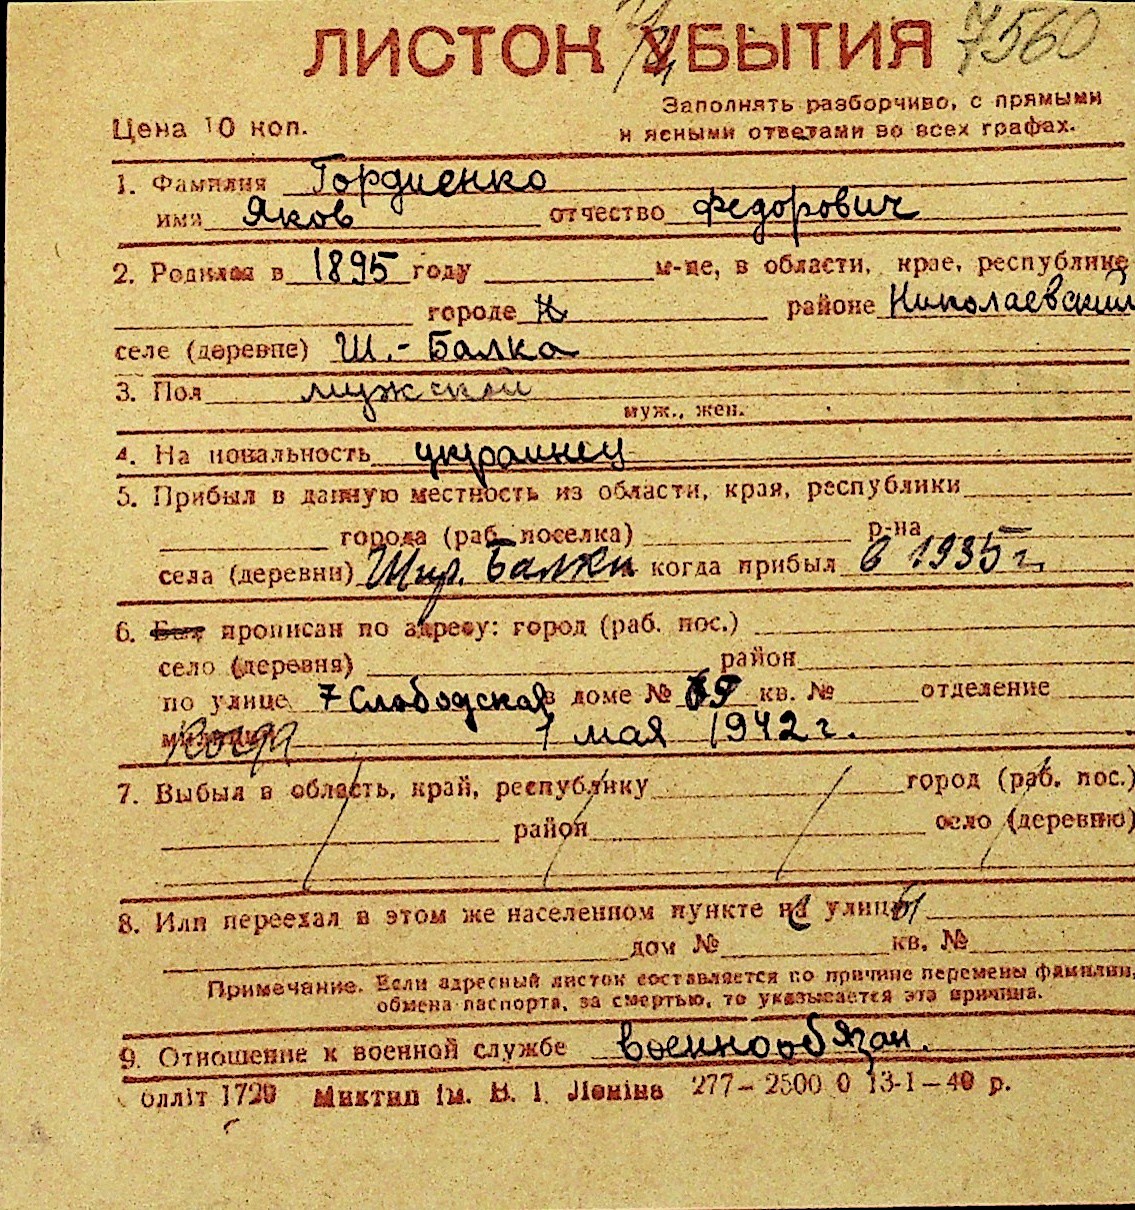 ЛИСТОК УБЫТИЯ 7560
Заполнять разборчиво, с прямыми
Цена 10 коп. и ясными ответами во всех графах.
1. Фамилия Гордиенко
имя Яков отчество Федорович
2. Родился в 1895 году м-це, в области, крае, республике
городе Н районе Николаевский
селе (деревне) Ш.-Балка
3. Пол мужской
муж., жен.
4. На иональность украинец
5. Прибыл в данную местность из области, края, республики
города (раб. поселка) р-на
села (деревни) Шир. Балки когда прибыл в 1935 г.
6. Был прописан по адресу: город (раб. пос.)
село (деревня) район
по улице 7 Слободская в доме № кв. № отделение
Когда 1 мая 1942 г.
7. Выбыл в область, край, республику город (раб. пос.)
район село (деревню)
8. Или переехал в этом же населенном пункте с улицы
дом № кв. №
Примечание. Если адресный листок составляется по причине перемены фамилии,
обмена паспорта, за смертью, то указывается эта причина.
9. Отношение к военной службе военнообязан.
блліт 1720 Миктип ім. В. І. Леніна 277–2500 0 13-1–40 р.